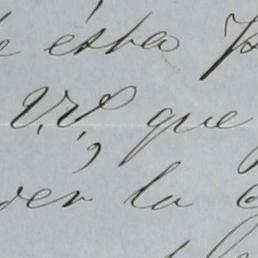 e ésta
V.E., que
der la